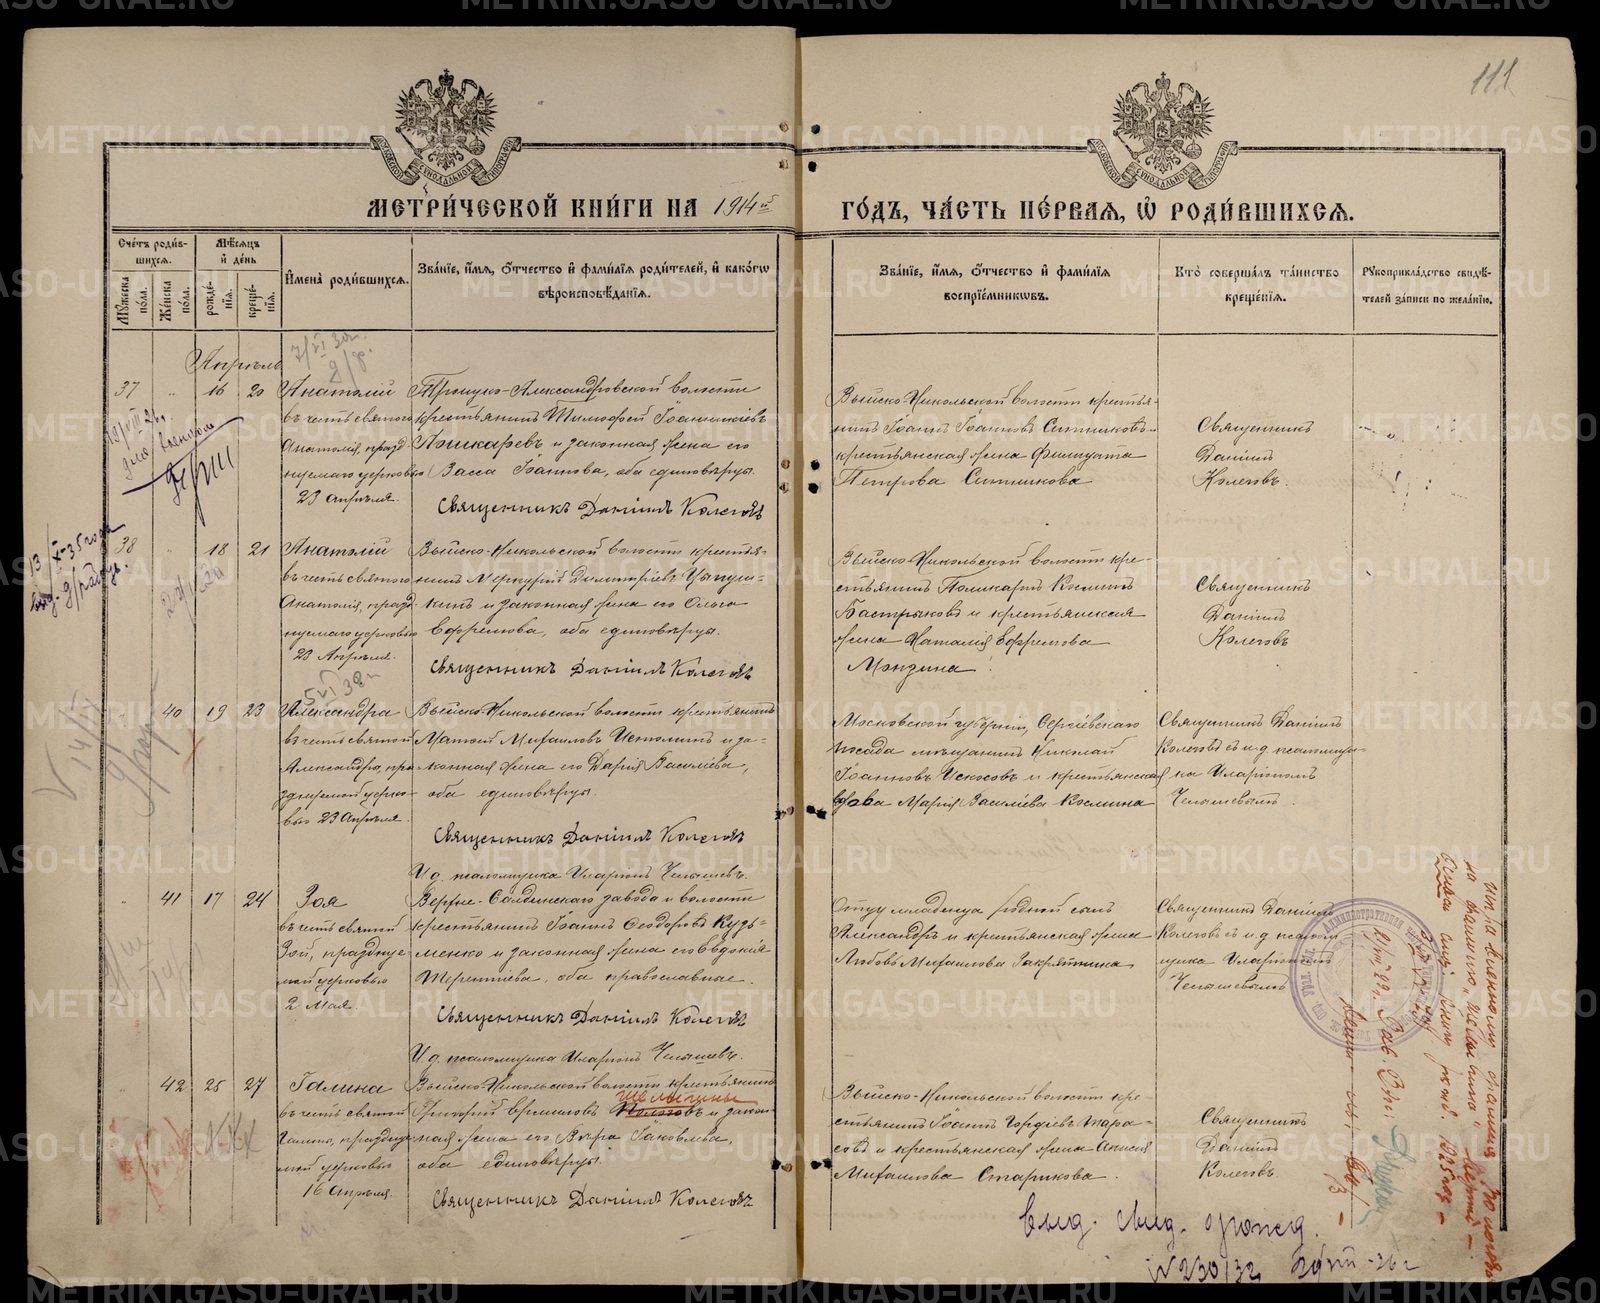 111
МЕТРИ́ЧЕСКОЙ КНИ́ГИ НА 1914й
ГО́ДЪ, ЧА́СТЬ ПЕ́РВАЯ, Ѡ҆ РОДИ́ВШИХСЯ.
Сче́тъ роди́вшихся.
Мꙋ́жеска по́ла.
Же́нска по́ла.
Мѣ́сяцъ и҆ де́нь
рожде́нїѧ.
креще́нїѧ.
И҆мена̀ роди́вшихсѧ.
Зва́нїе, и҆́мѧ, ѻ҆́тчество и҆ фами́лїѧ роди́телей, и҆ како́гѡ
вѣроисповѣ́данїѧ.
Зва́нїе, и҆́мѧ, ѻ҆́тчество и҆ фами́лїѧ
воспрїе́мникѡвъ.
Кто̀ соверша́лъ та́инство
креще́нїѧ.
Рꙋкоприкла́дство свидѣ́-
телей за́писи по жела́нїю.
Апрѣль
37 16 20
Анатолій
въ честь святого
Анатолія, празд
нуемаго церковью
23 апрѣля.
Троицко-Александровской волости
крестьянинъ Тимофей Іоанникіевъ
Пошкаревъ и законная жена его
Васса Іоаннова, оба единовѣрцы.
Священникъ Даніилъ Колеговъ
Выйско-Никольской волости крестья-
нинъ Іоаннъ Іоанновъ Ситниковъ и
крестьянская жена Фиигуата
Петрова Ситникова
Священникъ
Даніилъ
Колеговъ.
38 18 21
Анатолій
въ честь святого
Анатолія, празд-
нуемаго церковью
23 Апрѣля.
Выйско-Никольской волости крестья-
нинъ Меркурій Димитріевъ Цыпуш-
кинъ и законная жена его Ольга
Ефремова, оба единовѣрцы.
Священникъ Даніилъ Колеговъ
Выйско-Никольской волости кре-
стьянинъ Поликарпъ Косминъ
Бастрыковъ и крестьянская
жена Наталія Ефремова
Мэнзина
Священникъ
Даніилъ
Колеговъ
40 19 23
Александра
въ честь святой
Александры, пра
зднуемой церко-
вью 23 Апрѣля.
Выйско-Никольской волости крестьянинъ
Матвей Михаиловъ Истоминъ и за-
конная жена его Дарія Василіева,
оба единовѣрцы.
Священникъ Даніилъ Колеговъ
И. д. псаломщика Иларіонъ Чепышевъ.
Московской губерніи, Сергіевскаго
посада мѣщанинъ Николай
Іоанновъ Искосовъ и крестьянская
вдова Марія Васильева Космина
Священникъ Даніилъ
Колеговъ съ и. д. псаломщи-
ка Иларіономъ
Чепышевымъ.
41 17 24
Зоя
въ честь святой
Зои, празднуе-
мой церковью
2 Мая.
Верхне-Салдинскаго завода и волости
крестьянинъ Іоаннъ Ѳеодоровъ Кузь-
менко и законная жена его Евдокія
Терентіева, оба православные.
Священникъ Даніилъ Колеговъ
И. д. псаломщика Иларіонъ Чепышевъ.
Отцу младенца родной сынъ
Александръ и крестьянская жена
Любовь Михаилова Закрятина
Священникъ Даніилъ
Колеговъ съ и. д. псалом
щика Иларіономъ
Чепышевымъ
42 25 27
Галина
въ честь святой
Галины, праздну
емой церковью
16 апрѣля.
Выйско-Никольской волости крестьянинъ
Григорій Ермиловъ Пологовъ и закон-
ная жена его Вѣра Іаковлева,
оба единовѣрцы.
Священникъ Даніилъ Колеговъ
Выйско-Никольской волости кре-
стьянинъ Іоаннъ Гордіевъ Тара-
совъ и крестьянская жена Анисія
Михаилова Старикова.
Священникъ
Даніилъ
Колеговъ.
Выд. свид. о рожд.
№ 230/32